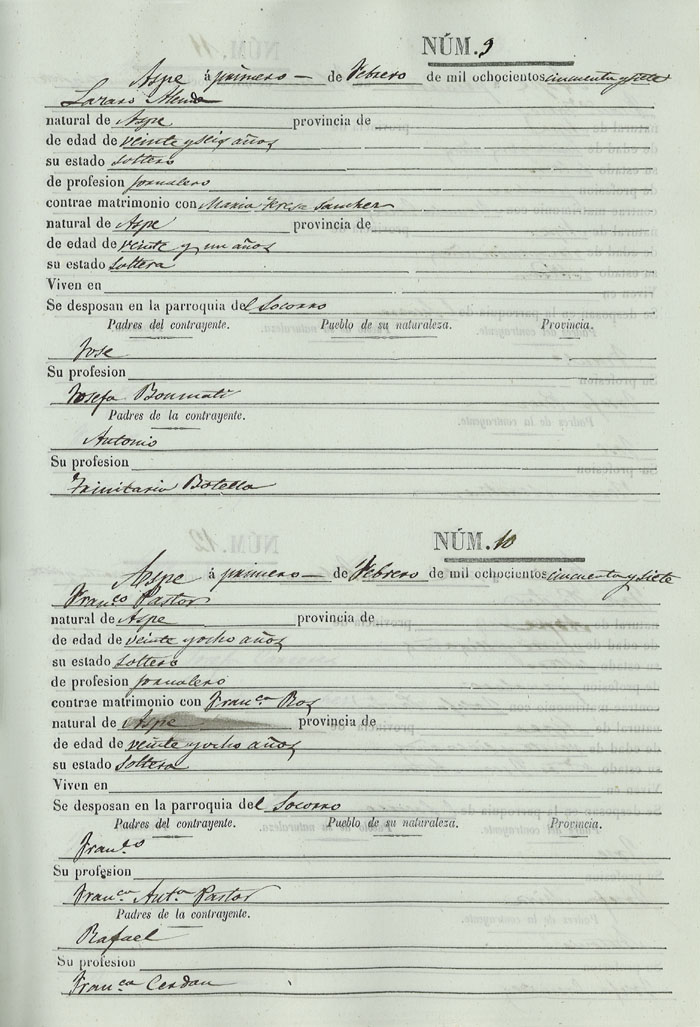 NÚM. 9
Aspe á primero de Febrero de mil ochocientos cincuenta y siete
Lazaro Alenda
natural de Aspe provincia de
de edad de veinte y seis años
su estado soltero
de profesion jornalero
contrae matrimonio con Maria Teresa Sanchez
natural de Aspe provincia de
de edad de veinte y un años
su estado soltera
Viven en
Se desposan en la parroquia del Socorro
Padres del contrayente. Pueblo de su naturaleza. Provincia.
Jose
Su profesion
Josefa Boumati
Padres de la contrayente.
Antonio
Su profesion
Trinitaria Botella
NÚM. 10
Aspe á primero de Febrero de mil ochocientos cincuenta y siete
Fran.co Pastor
natural de Aspe provincia de
de edad de veinte y ocho años
su estado soltero
de profesion jornalero
contrae matrimonio con Fran.ca Roz
natural de Aspe provincia de
de edad de veinte y ocho años
su estado soltera
Viven en
Se desposan en la parroquia del Socorro
Padres del contrayente. Pueblo de su naturaleza. Provincia.
Fran.co
Su profesion
Fran.ca Ant.a Pastor
Padres de la contrayente.
Rafael
Su profesion
Fran.ca Cerdan